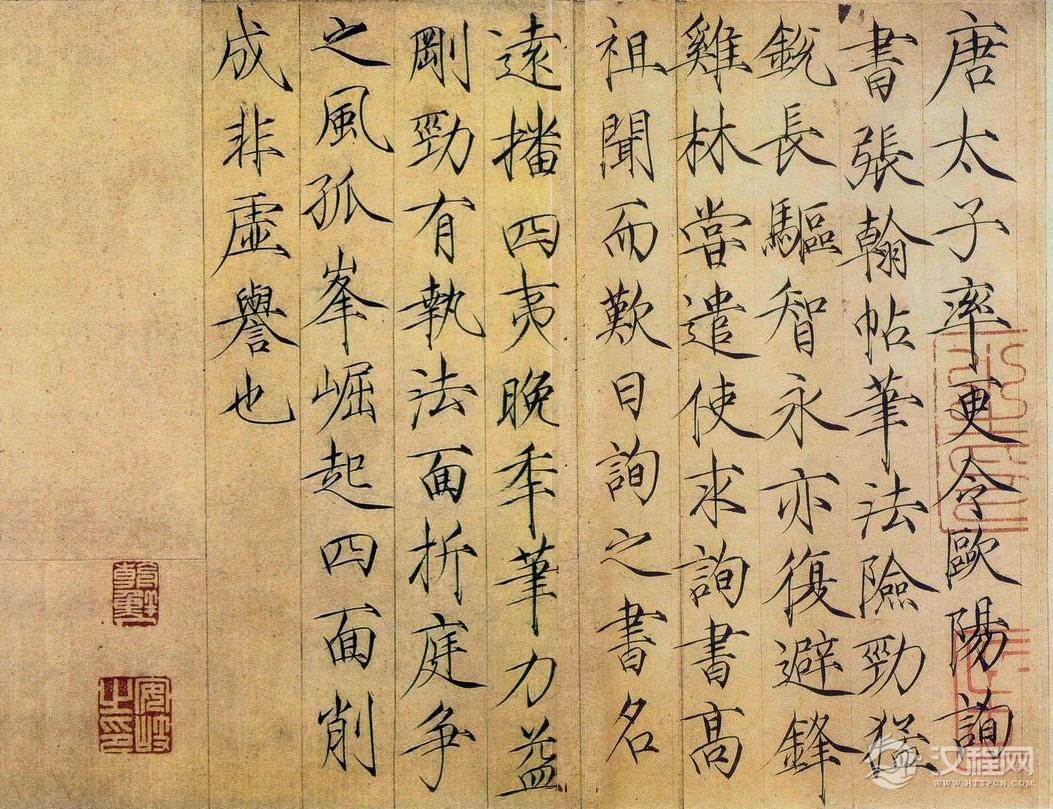 唐太子率更令歐陽詢
書張翰帖筆法險勁猛
銳長驅智永亦復避鋒
雞林嘗遣使求詢書高
祖聞而歎曰詢之書名
遠播四夷晚年筆力益
剛勁有執法面折庭爭
之風孤峯崛起四面削
成非虛譽也
安岐之印
汉程网
WWW.HTTPCN.COM